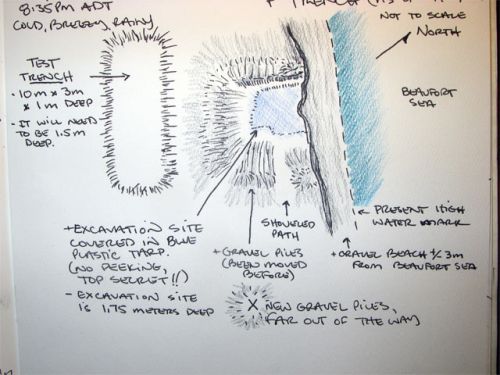 8:35PM ADT
COLD, BREEZY, RAINY
NOT TO SCALE
NORTH
TEST
TRENCH
- 10m x 3m
x 1m DEEP
- IT WILL NEED
TO BE 1.5m
DEEP.
BEAUFORT
SEA
PRESENT HIGH
WATER MARK
+ EXCAVATION SITE
COVERED IN BLUE
PLASTIC TARP.
(NO PEEKING,
TOP SECRET!!)
- EXCAVATION SITE
IS 1.75 METERS DEEP
SHOVELED
PATH
+ GRAVEL PILES
(BEEN MOVED
BEFORE)
+ GRAVEL BEACH 3m
FROM BEAUFORT SEA
X NEW GRAVEL PILES,
FAR OUT OF THE WAY